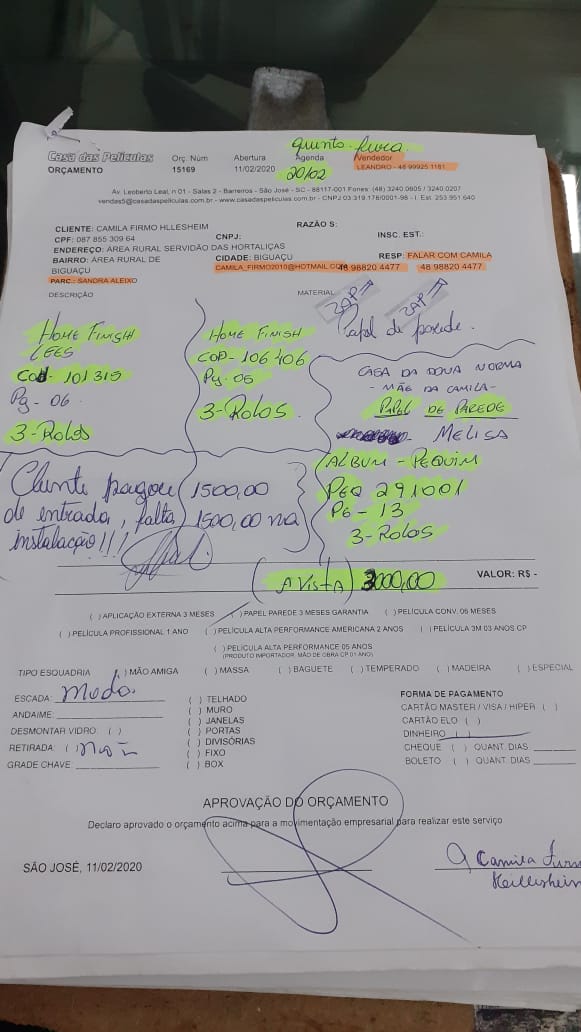 quinta-feira
Casa das Películas Orç. Núm Abertura Agenda Vendedor
ORÇAMENTO 15169 11/02/2020 20/02 LEANDRO - 48 99925 1161
Av. Leoberto Leal, n 01 - Salas 2 - Barreiros - São José - SC - 88117-001 Fones: (48) 3240 0605 / 3240 0207
vendas5@casadaspeliculas.com.br - www.casadaspeliculas.com.br - CNPJ 03.319.178/0001-98 - I. Est. 253.951.640
CLIENTE: CAMILA FIRMO HLLESHEIM RAZÃO S:
CPF: 087 855 309 64 CNPJ: INSC. EST.:
ENDEREÇO: ÁREA RURAL SERVIDÃO DAS HORTALIÇAS
BAIRRO: ÁREA RURAL DE CIDADE: BIGUAÇU RESP: FALAR COM CAMILA
BIGUAÇU CAMILA_FIRMO2010@HOTMAIL.COM 48 98820 4477 48 98820 4477
PARC.: SANDRA ALEIXO
DESCRIÇÃO MATERIAL
ZAP ZAP
Papel de parede.
HOME FINISH
LEES
Cod- 101315
Pg - 06
3-Rolos
HOME FINISH
COD- 106406
Pg - 05
3-Rolos
CASA DA DONA NORMA
- MÃE DA CAMILA -
PAPEL DE PAREDE
MELISA
ALBUM - PEQUIM
PEQ 291001
PG - 13
3-Rolos
Cliente pagou 1500,00
de entrada, falta 1500,00 na
instalação!!!
(A Vista) 3000,00 VALOR: R$ -
( ) APLICAÇÃO EXTERNA 3 MESES ( ) PAPEL PAREDE 3 MESES GARANTIA ( ) PELÍCULA CONV. 06 MESES
( ) PELÍCULA PROFISSIONAL 1 ANO ( ) PELÍCULA ALTA PERFORMANCE AMERICANA 2 ANOS ( ) PELÍCULA 3M 03 ANOS CP
( ) PELÍCULA ALTA PERFORMANCE 05 ANOS
(PRODUTO IMPORTADOR. MÃO DE OBRA CP 01 ANO)
TIPO ESQUADRIA ( ) MÃO AMIGA ( ) MASSA ( ) BAGUETE ( ) TEMPERADO ( ) MADEIRA ( ) ESPECIAL
ESCADA:
ANDAIME:
DESMONTAR VIDRO: ( )
RETIRADA: ( ) não
GRADE CHAVE:
( ) TELHADO
( ) MURO
( ) JANELAS
( ) PORTAS
( ) DIVISÓRIAS
( ) FIXO
( ) BOX
FORMA DE PAGAMENTO
CARTÃO MASTER / VISA / HIPER ( )
CARTÃO ELO ( )
DINHEIRO
CHEQUE ( ) QUANT. DIAS
BOLETO ( ) QUANT. DIAS
APROVAÇÃO DO ORÇAMENTO
Declaro aprovado o orçamento acima para a movimentação empresarial para realizar este serviço
SÃO JOSÉ, 11/02/2020
Camila Firm
Heillesheim